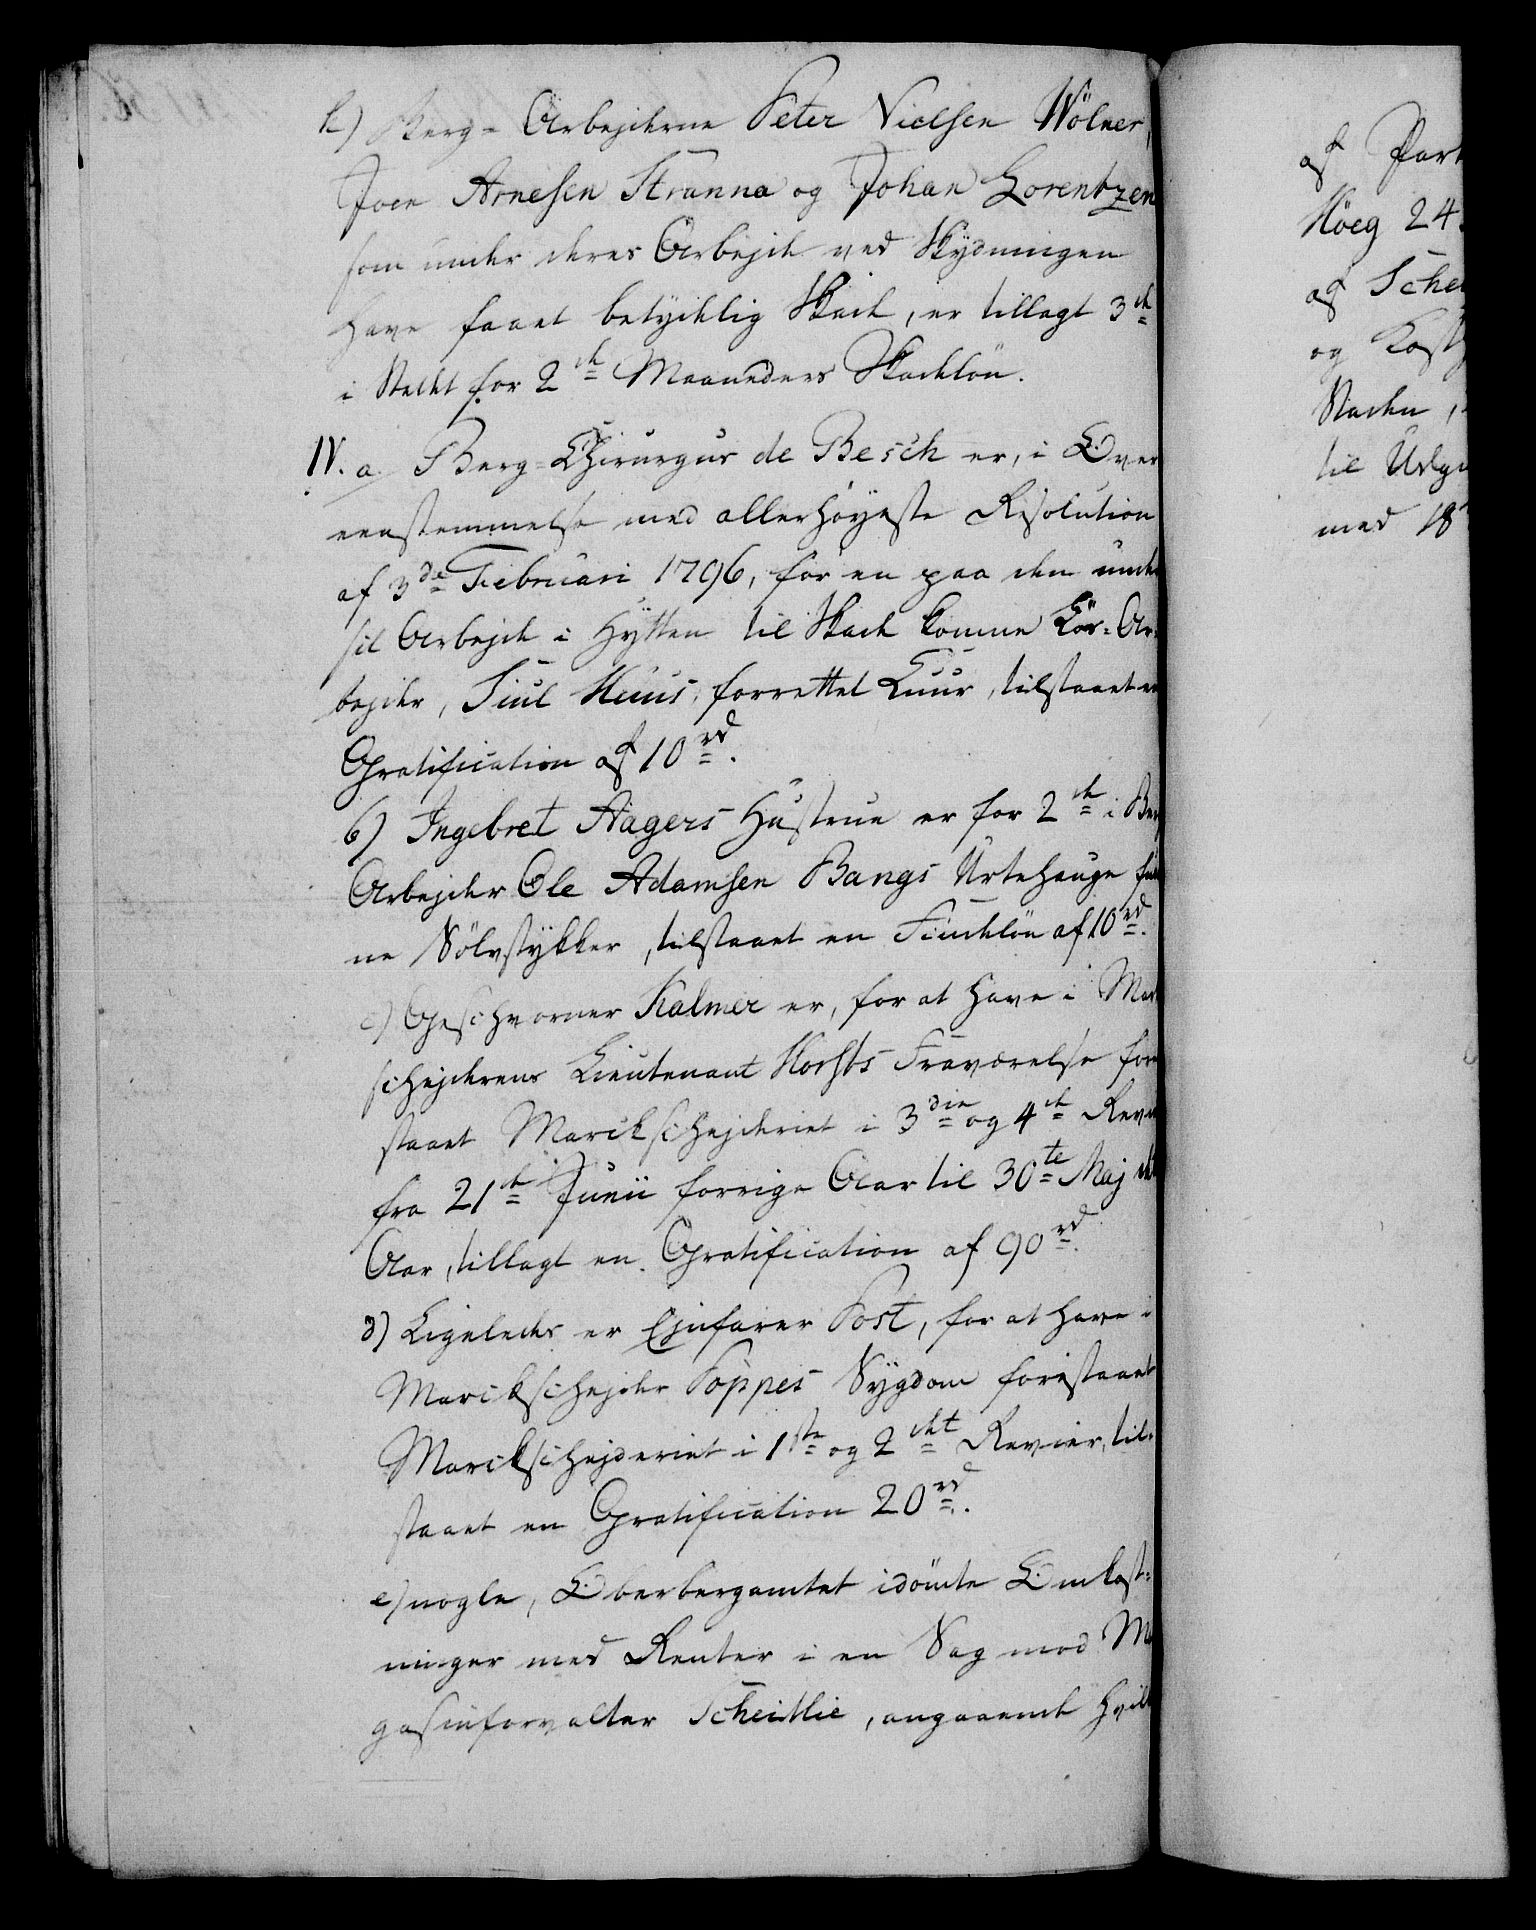 h) Berg-Arbejderne Peter Nielsen Wölner,
Joen Arnesen Stranna og Johan Lorentzen
som under deres Arbejde ved Skydningen
have faaet betydelig Skade, er tillagt 3de
i Stedet for 2de Maaneders Skadelön.
IV. a. Berg-Chirurgus de Besch er, i Over
eenstemmelse med allerhöyeste Resolution
af 3die Februari 1796, for en paa den unde
sit Arbejde i Hytten til Skade komne Kör-Ar-
bejder, Siul Huus, forrettet Cuur, tilstaaet en
Gratification af 10 rd.
b) Ingebret Aagers Hustrue er for 2de i Berg
Arbejder Ole Adamsen Bangs Urtehauge fund
ne Sölvstykker, tilstaaet en Findelön af 10 rd.
c) Geschworner Kalmer er, for at have i Mark
schejderens Lieutenant Horsts Fraværelse fore
staaet Marckschejderiet i 3die og 4de Revier
fra 21de Junii forrige Aar til 30te Maj dette
Aar, tillagt en Gratification af 90 rd.
d) Ligeledes er Ejnfarer Post, for at have i
Marckschejder Poppes Sygdom forestaaet
Marckschejderiet i 1ste og 2det Revier, til-
staaet en Gratification 20 rd.
e) nogle, Oberbergamtet idömte Omkost-
ninger med Renter i en Sag mod Ma
gasinforvalter Scheitlie, angaaende hvilk
af Part
Höeg 24.
af Schei
og Kost
Staden,
til Udgi
med 18